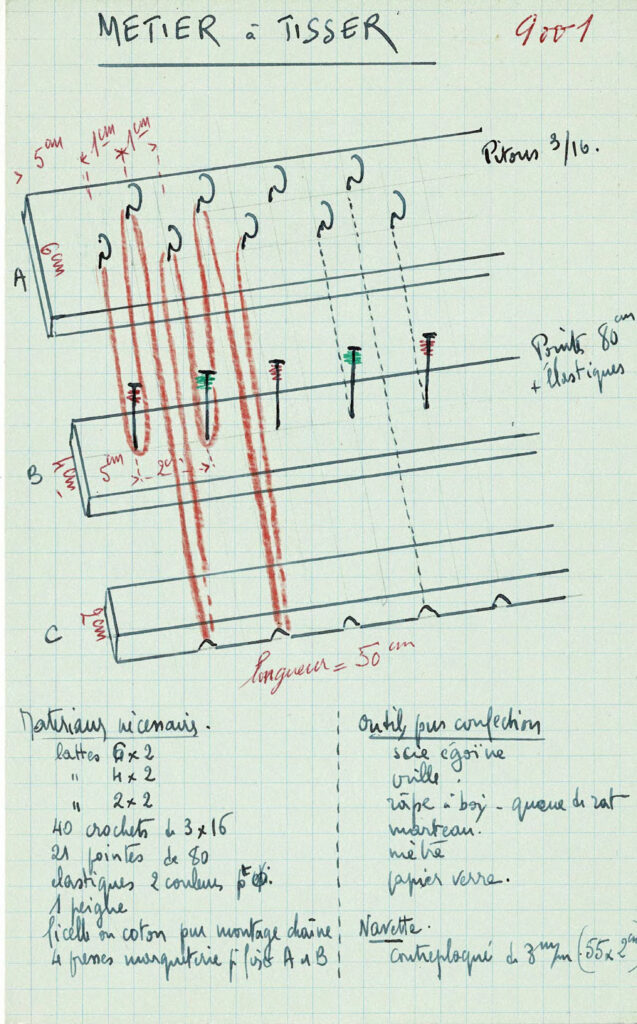 METIER à TISSER
9001
5 cm
1 cm
1 cm
Pitons 3/16.
6 cm
A
Pointes 80
+ élastiques
B
4 cm
5 cm
2 cm
C
2 cm
longueur = 50 cm
Materiaux nécessaires.
lattes 6 x 2
" 4 x 2
" 2 x 2
40 crochets de 3 x 16
21 pointes de 80
elastiques 2 couleurs
1 peigne
ficelle ou coton pur montage chaîne
4 presses marquiterie A B
Outils pur confection
scie égoïne
vrille.
râpe à bois - queue de rat
marteau.
mètre
papier verre.
Navette.
Contreplaqué de 3 m/m (55 x 2 cm)